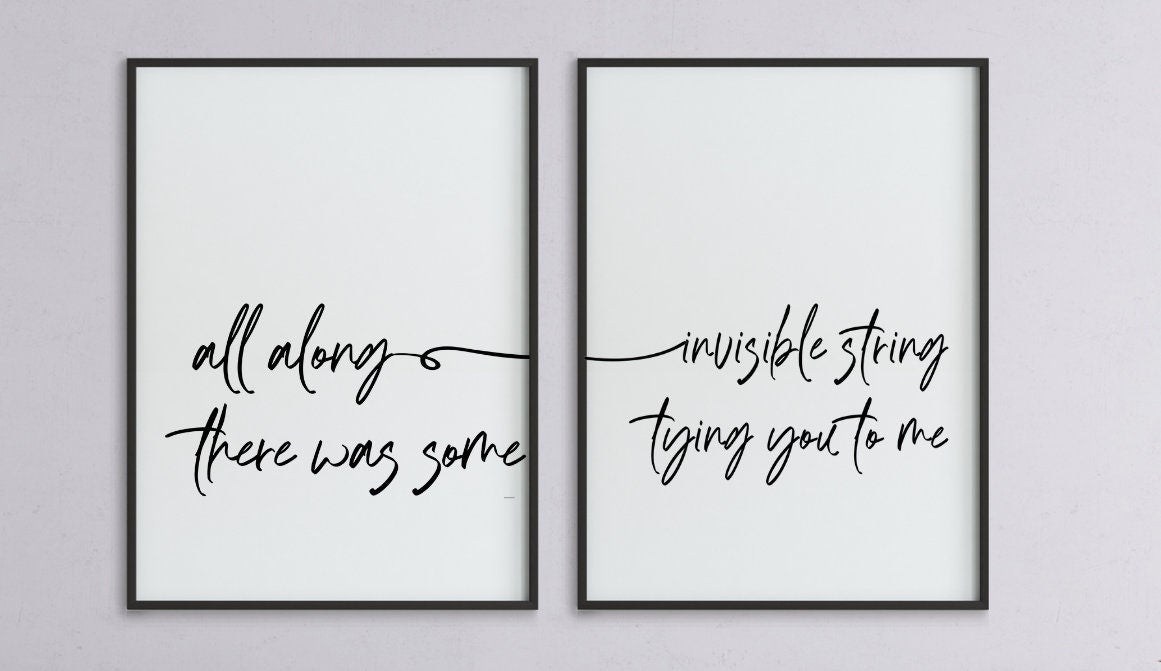 all along
there was some
invisible string
tying you to me